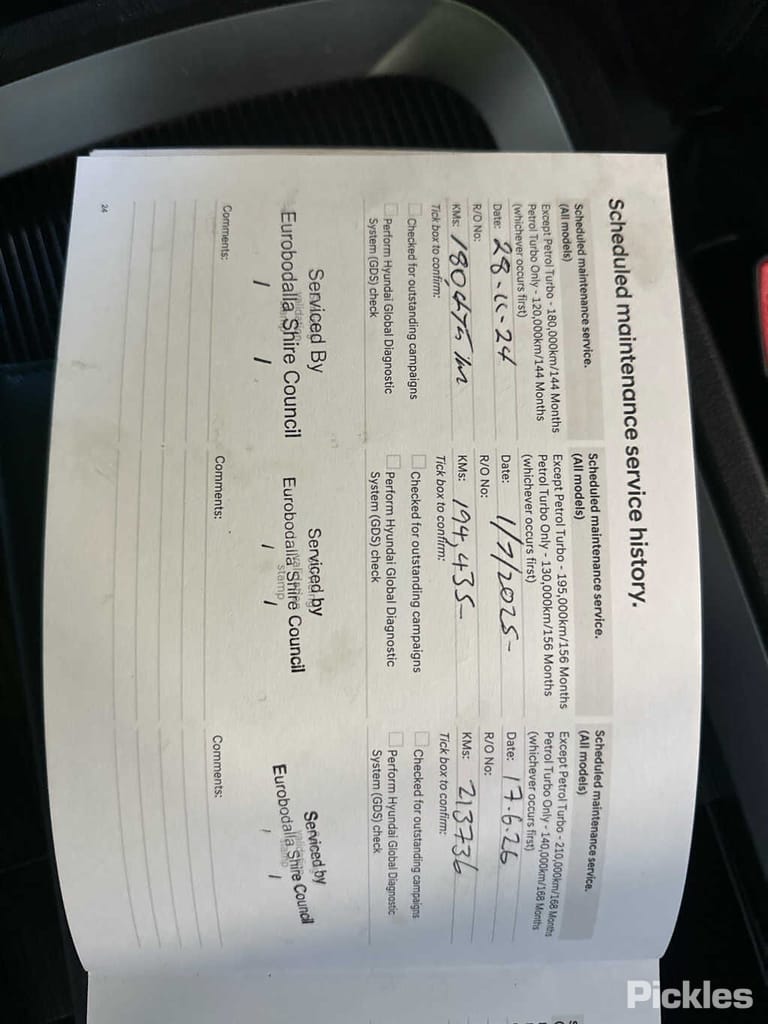 Scheduled maintenance service history.
Scheduled maintenance service.
(All models)
Except Petrol Turbo - 180,000km/144 Months
Petrol Turbo Only - 120,000km/144 Months
(whichever occurs first)
Date: 28-11-24
R/O No:
KMs: 180,475
Tick box to confirm:
Checked for outstanding campaigns
Perform Hyundai Global Diagnostic
System (GDS) check
Serviced By
Eurobodalla Shire Council
validation
/ /
Comments:
Scheduled maintenance service.
(All models)
Except Petrol Turbo - 195,000km/156 Months
Petrol Turbo Only - 130,000km/156 Months
(whichever occurs first)
Date: 1/7/2025-
R/O No:
KMs: 194,435-
Tick box to confirm:
Checked for outstanding campaigns
Perform Hyundai Global Diagnostic
System (GDS) check
Serviced by
Eurobodalla Shire Council
stamp
/ /
Comments:
Scheduled maintenance service.
(All models)
Except Petrol Turbo - 210,000km/168 Months
Petrol Turbo Only - 140,000km/168 Months
(whichever occurs first)
Date: 17.6.26
R/O No:
KMs: 213736
Tick box to confirm:
Checked for outstanding campaigns
Perform Hyundai Global Diagnostic
System (GDS) check
Serviced by
Eurobodalla Shire Council
/ /
Comments:
24
Pickles